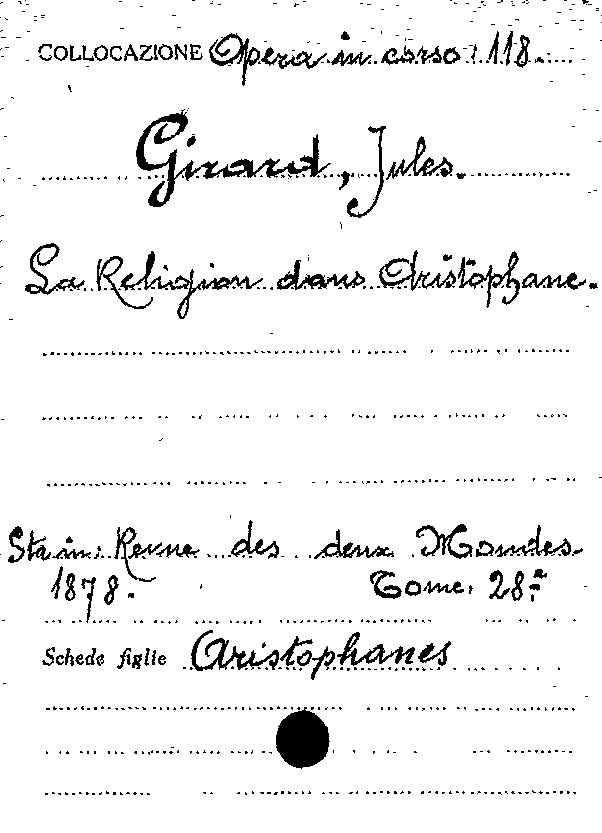 COLLOCAZIONE Opera in corso 118.
Girard, Jules.
La Religion dans Aristophane.
Sta in: Revue des deux Mondes.
1878. Tome. 28.e
Schede figlie Aristophanes